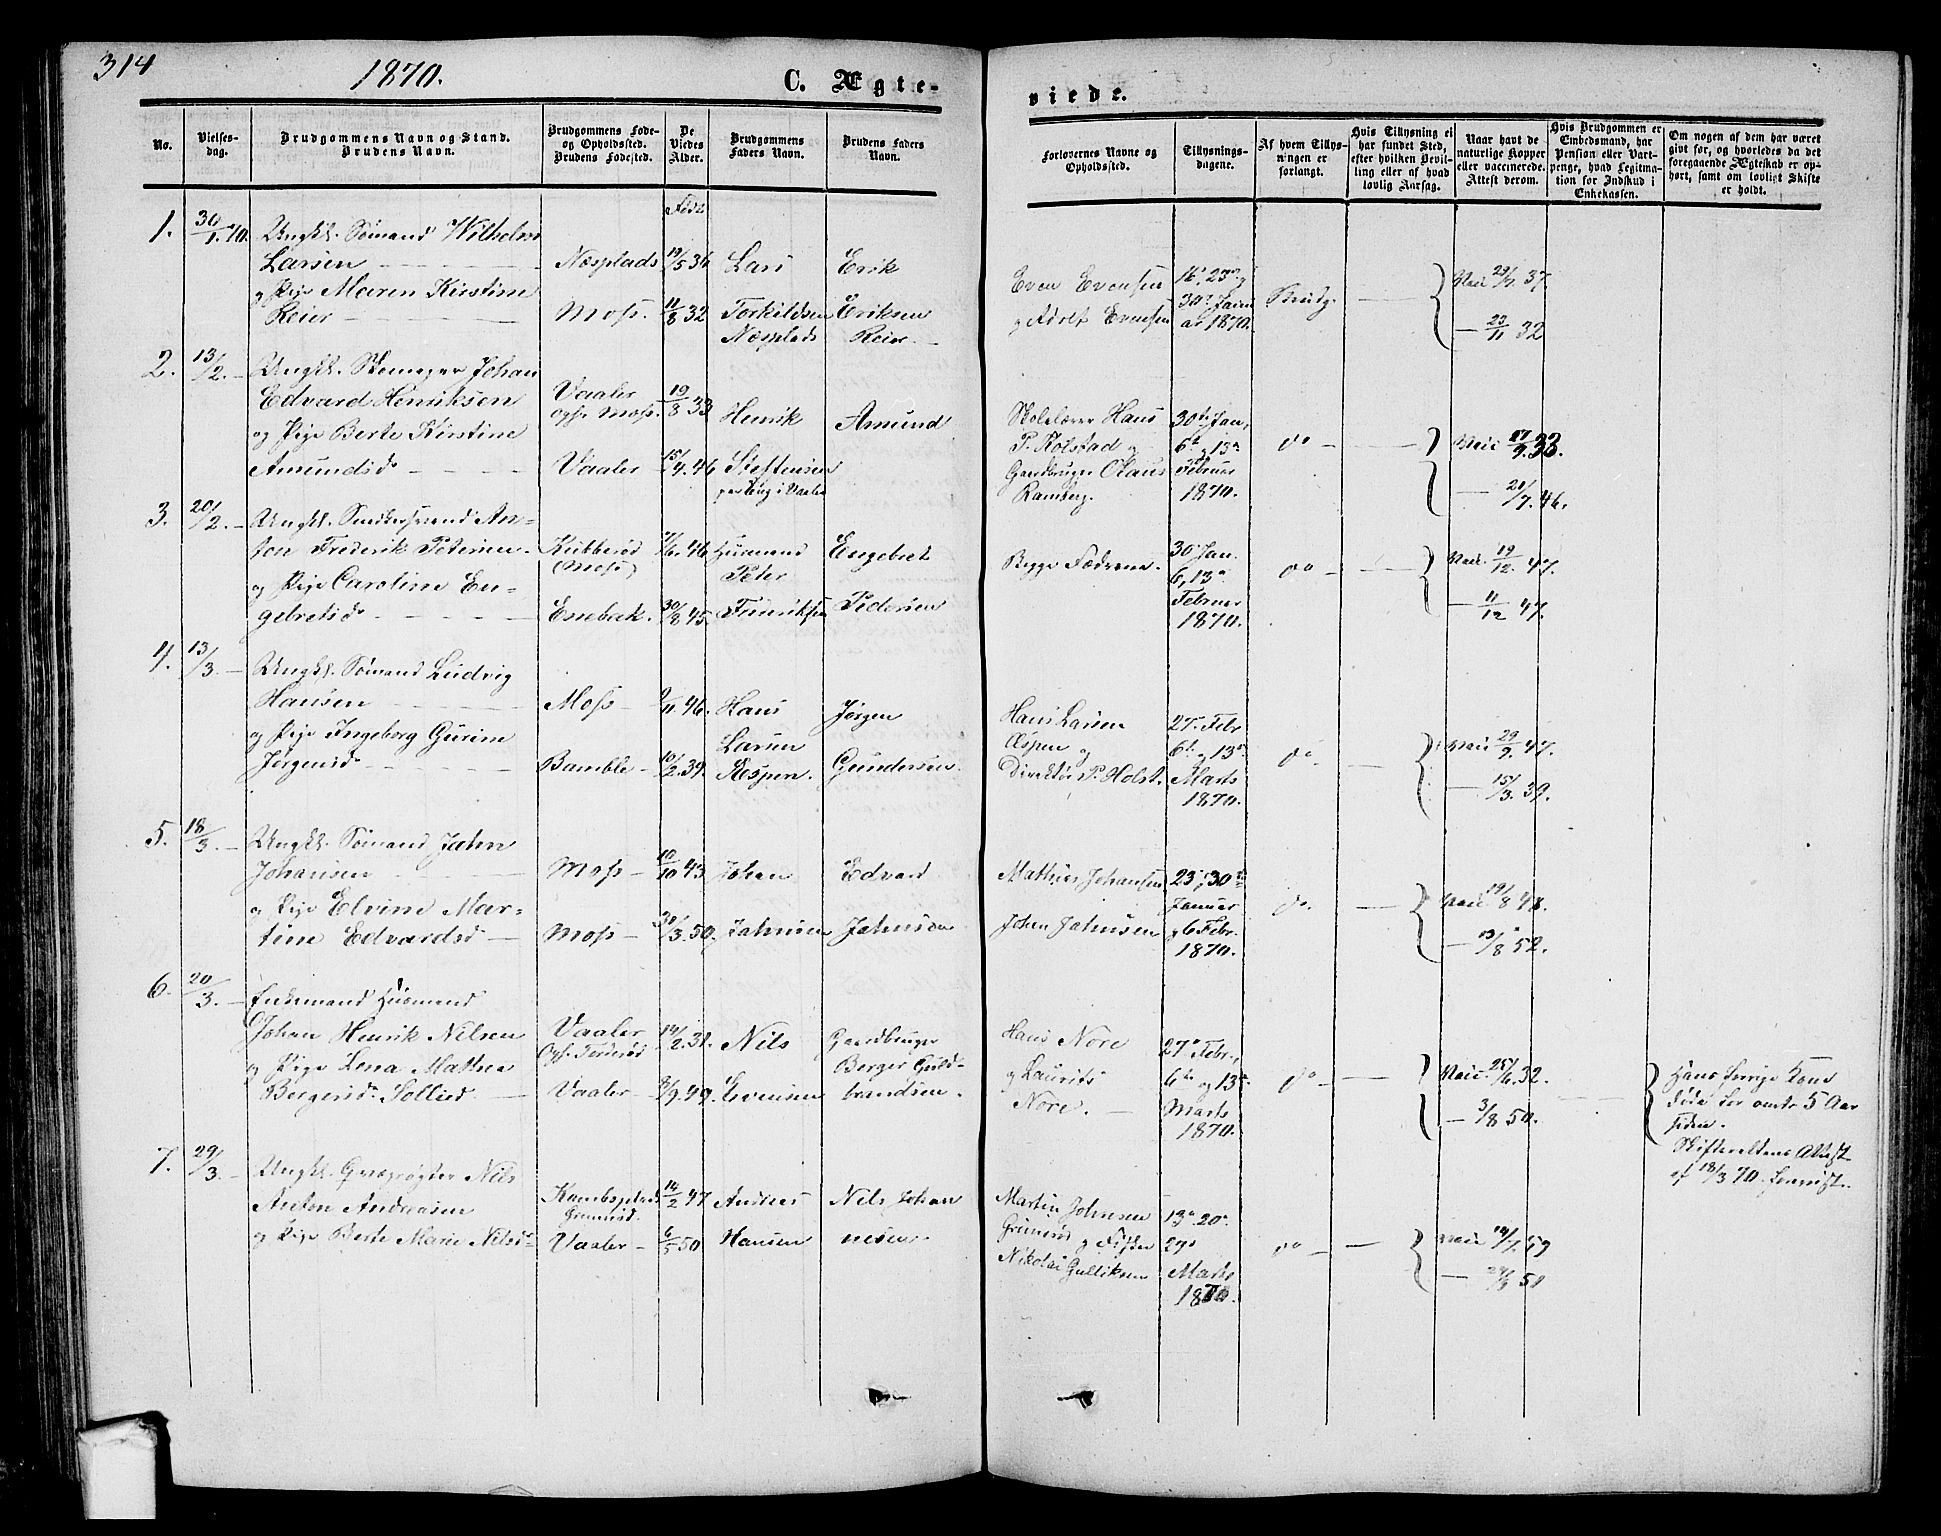 314
1870.
C. Ægte-
No.
Vielses-
dag.
Brudgommens Navn og Stand.
Brudens Navn.
Brudgommens Føde-
og Opholdssted.
Brudens Fødested.
De
Viedes
Alder.
Brudgommens
Faders Navn.
Brudens Faders
Navn.
Født
1. 30/1. 70. Ungk. Sømand Wilhelm
Larsen Næsplads 19/5 36 Lars Erik
og Pige Maren Kirstine
Reier Moss. 11/8 32 Torkildsen Eriksen
Næsplads Reier
2. 13/2. Ungk. Skomager Johan
Edvard Henriksen Vaaler 19/8 33 Henrik Amund
oph. Moss.
og Pige Berte Kirstine
Amundsd. Vaaler 15/4. 46 Steffensen
i Vaaler
3. 20/2. Ungk. Snedkersvend An-
ton Frederik Petersen Kubberød 7/6. 46 Husmand Engebret
(Moss) Peter
og Pige Caroline En-
gebretsd. Enebak. 30/8 45. Pedersen
4. 13/3. Ungk. Sømand Ludvig
Hansen Moss 9/11. 46. Hans Jørgen
og Pige Ingeborg Gurine
Jørgensd. Bamble 10/2. 39. Larsen Gundersen.
Æspen.
5. 18/3. Ungk. Sømand Jahn
Johansen Moss 10/10 43 Johan Edvard
og Pige Elvine Mar-
tine Edvardsd Moss 30/3. 50. Jahnsen Jahnsen
6. 20/3. Enkemand Husmand
Johan Henrik Nilsen Vaaler 14/2. 31. Nils Gaardbruger
og Pige Lena Mathea Oph. Berger Guld-
Bergersd. Sollied Vaaler 8/9. 49. Evensen brandsen.
7. 29/3. Ungk. Nils
Anton Andreasen 14/2 47 Andreas Nils Johan
og Pige Berte Marie Nilsd. Vaaler 6/5 50 Hansen nesen
viede.
Forlovernes Navne og
Opholdssted.
Tillysnings-
dagene.
Af hvem Tillys-
ningen er
forlangt.
Hvis Tillysning ei
har fundet Sted,
efter hvilken Bevil-
ling eller af hvad
lovlig Aarsag.
Naar havt de
naturlige Kopper
eller vaccinerede.
Attest derom.
Hvis Brudgommen er
Embedsmand, har
Pension eller Vart-
penge, hvad Legitima-
tion for Indskud i
Enkekassen.
Om nogen af dem har været
givt før, og hvorledes da det
foregaaende Ægteskab er op-
hørt, samt om lovligt Skifte
er holdt.
Even Evensen 16. 23. og
og Adolf Evensen 30. Janu Brudg. Vacc 37
ar 1870. 23/11 32
Skolelærer Hans 30te Jan,
P. Kolstad og 6te og 13de do Vacc 33.
Gaardbruger Olaus Februar
Ramberg. 1870. 20/7. 46.
30 Jan.
Begge Fædrene. 6, 13 do Vacc. 19/12. 47.
Februar
1870. 11/12 47.
Hans Larsen 27 Febr
Æspen og 6te og 13de do. Vacc 29/9. 47.
Direktør P. Holst. Marts
1870. 15/3. 39.
Mathias Johansen 23, 30te
Januar do. Vacc 19/8 48.
Johan Jahnsen og 6 Febr.
1870. 13/8 52.
Hans Nore 27 Febr.,
og Laurits 6te og 13de do Vacc. 25/6. 32. Hans forrige Kone
Nore. Marts 3/8 50. døde for omtr 5 Aar
1870. siden.
Skifterettens Attest
af 18/3 70 forevist.
Martin Johnsen 13. 20.
og 29 do Vacc
Nikolai Gulliksen Marts 51
1870.